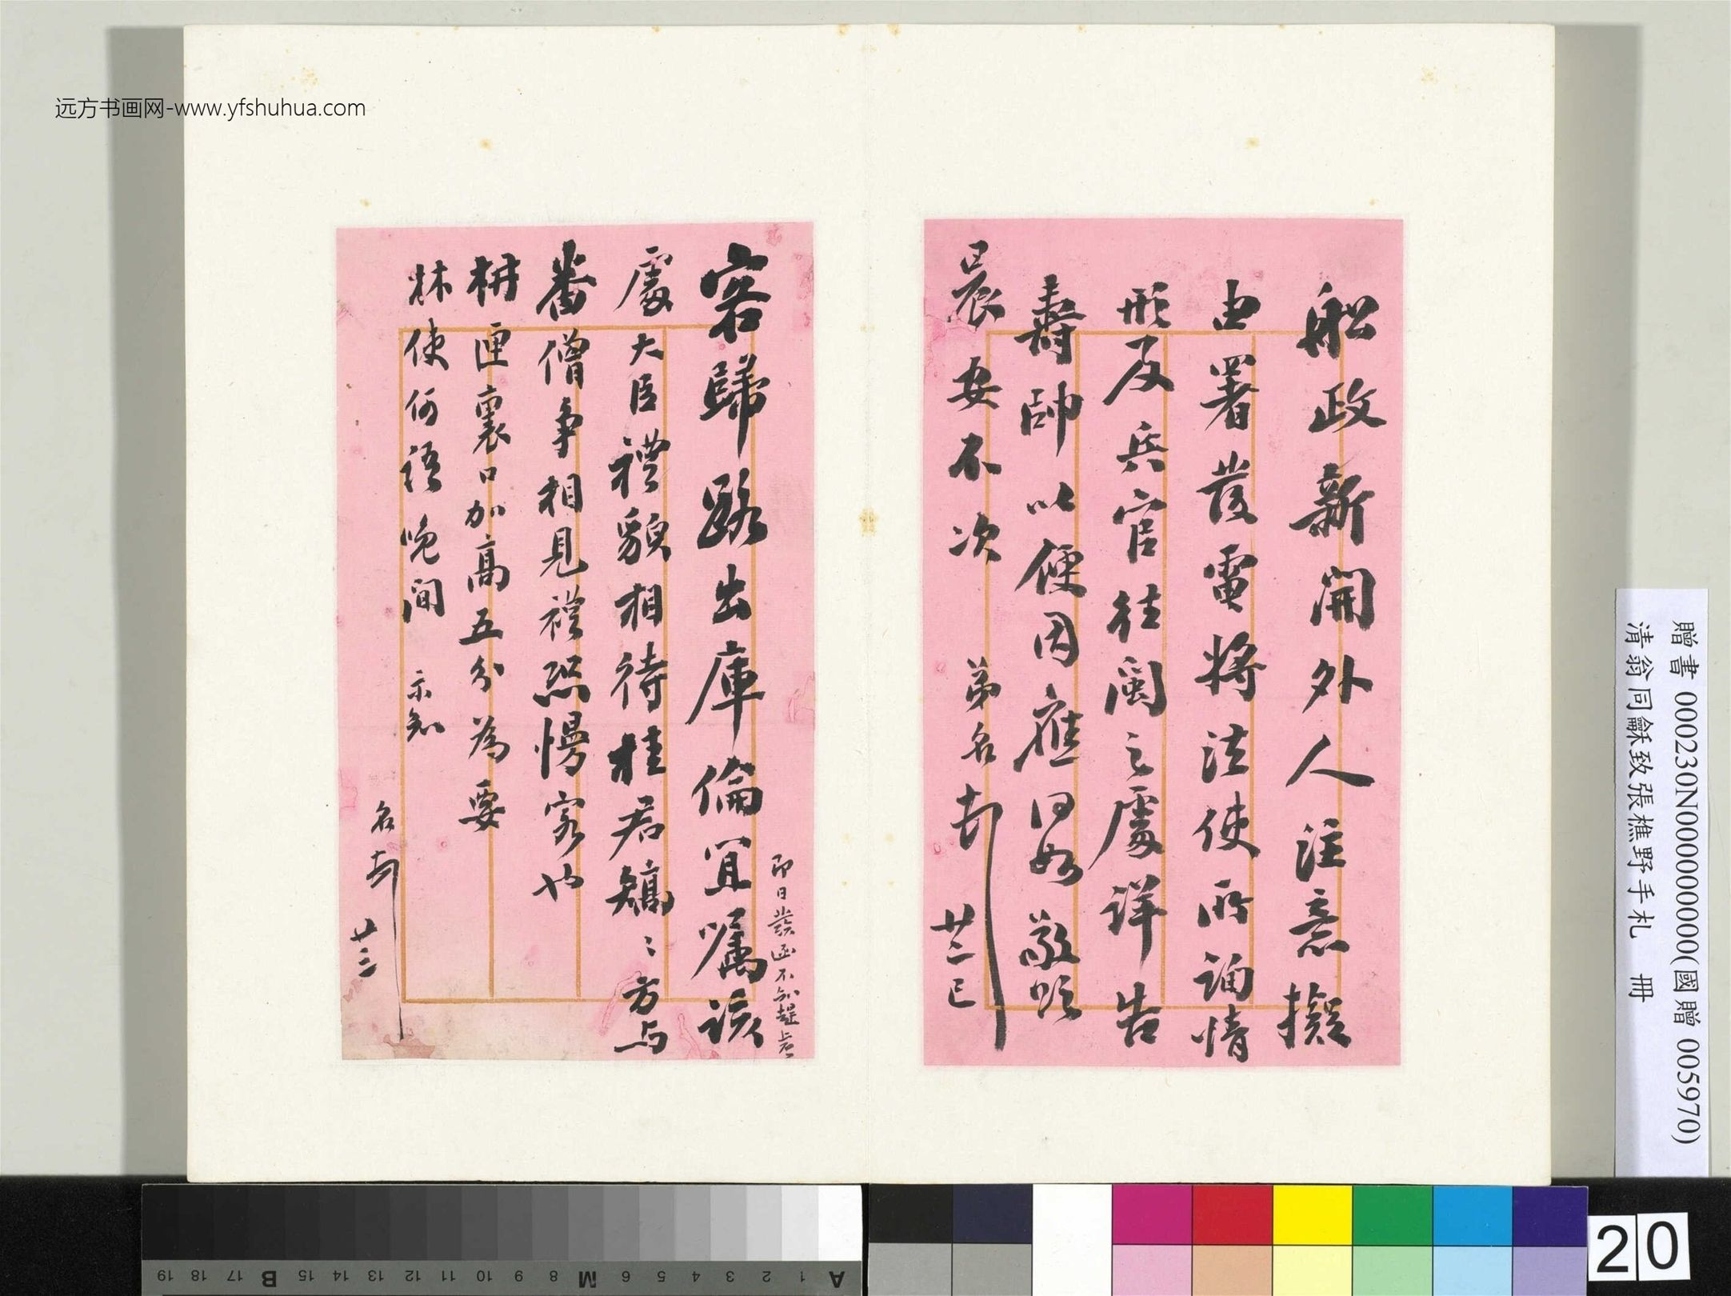 远方书画网-www.yfshuhua.com
船政新開外人注意擬
由署發電將法使所誦情
形及兵官往閩之處詳告
壽帥以便因應同叩敬頌
晨安不次
弟名頓
廿三巳
容歸路出庫倫宜囑該
處大臣禮貌相待桂君矯〻方与
番僧爭相見禮恐慢客也
枬匣裏口加高五分為要
林使何語晚間 示知
名頓
廿三
即日發函不知趕
贈書 000230N000000000(國贈 005970)
清翁同龢致張樵野手札 冊
20
A 1 2 3 4 5 6 M 8 9 10 11 12 13 14 15 B 17 18 19